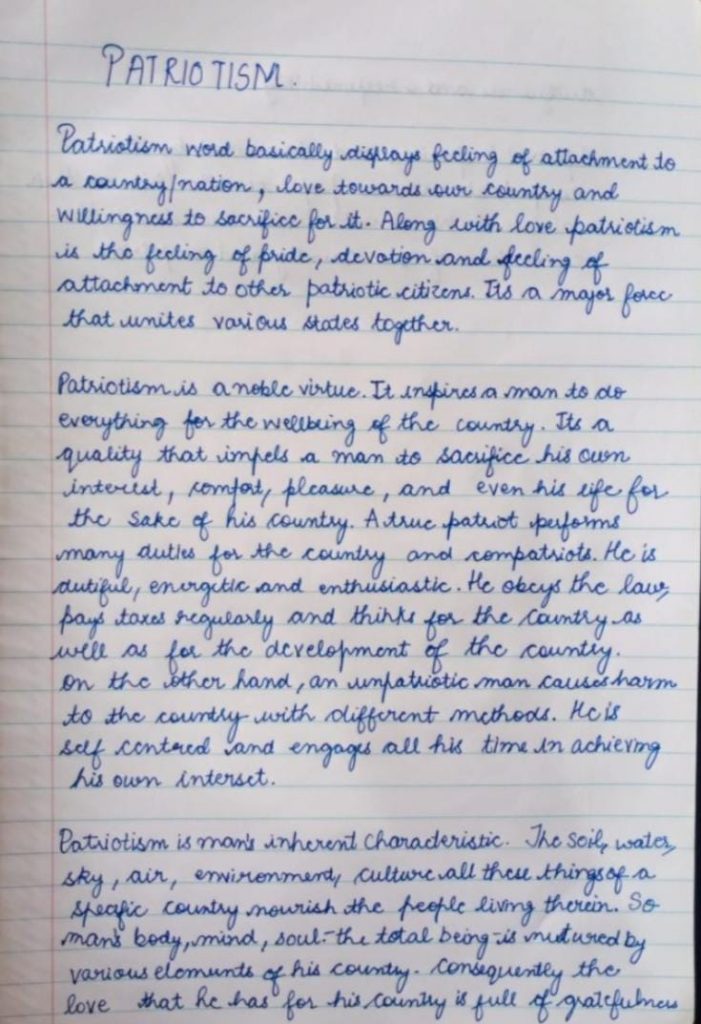 PATRIOTISM.
Patriotism word basically displays feeling of attachment to
a country/nation, love towards our country and
willingness to sacrifice for it. Along with love patriotism
is the feeling of pride, devotion and feeling of
attachment to other patriotic citizens. Its a major force
that unites various states together.
Patriotism is a noble virtue. It inspires a man to do
everything for the wellbeing of the country. Its a
quality that impels a man to sacrifice his own
interest, comfort, pleasure, and even his life for
the sake of his country. A true patriot performs
many duties for the country and compatriots. He is
dutiful, energetic and enthusiastic. He obeys the law,
pays taxes regularly and thinks for the country as
well as for the development of the country.
On the other hand, an unpatriotic man causes harm
to the country with different methods. He is
self centred and engages all his time in achieving
his own interset.
Patriotism is man's inherent characteristic. The soil, water,
sky, air, environment, culture all these things of a
specific country nourish the people living therein. So
man's body, mind, soul-the total being-is nutured by
various elements of his country. Consequently the
love that he has for his country is full of gratefulness